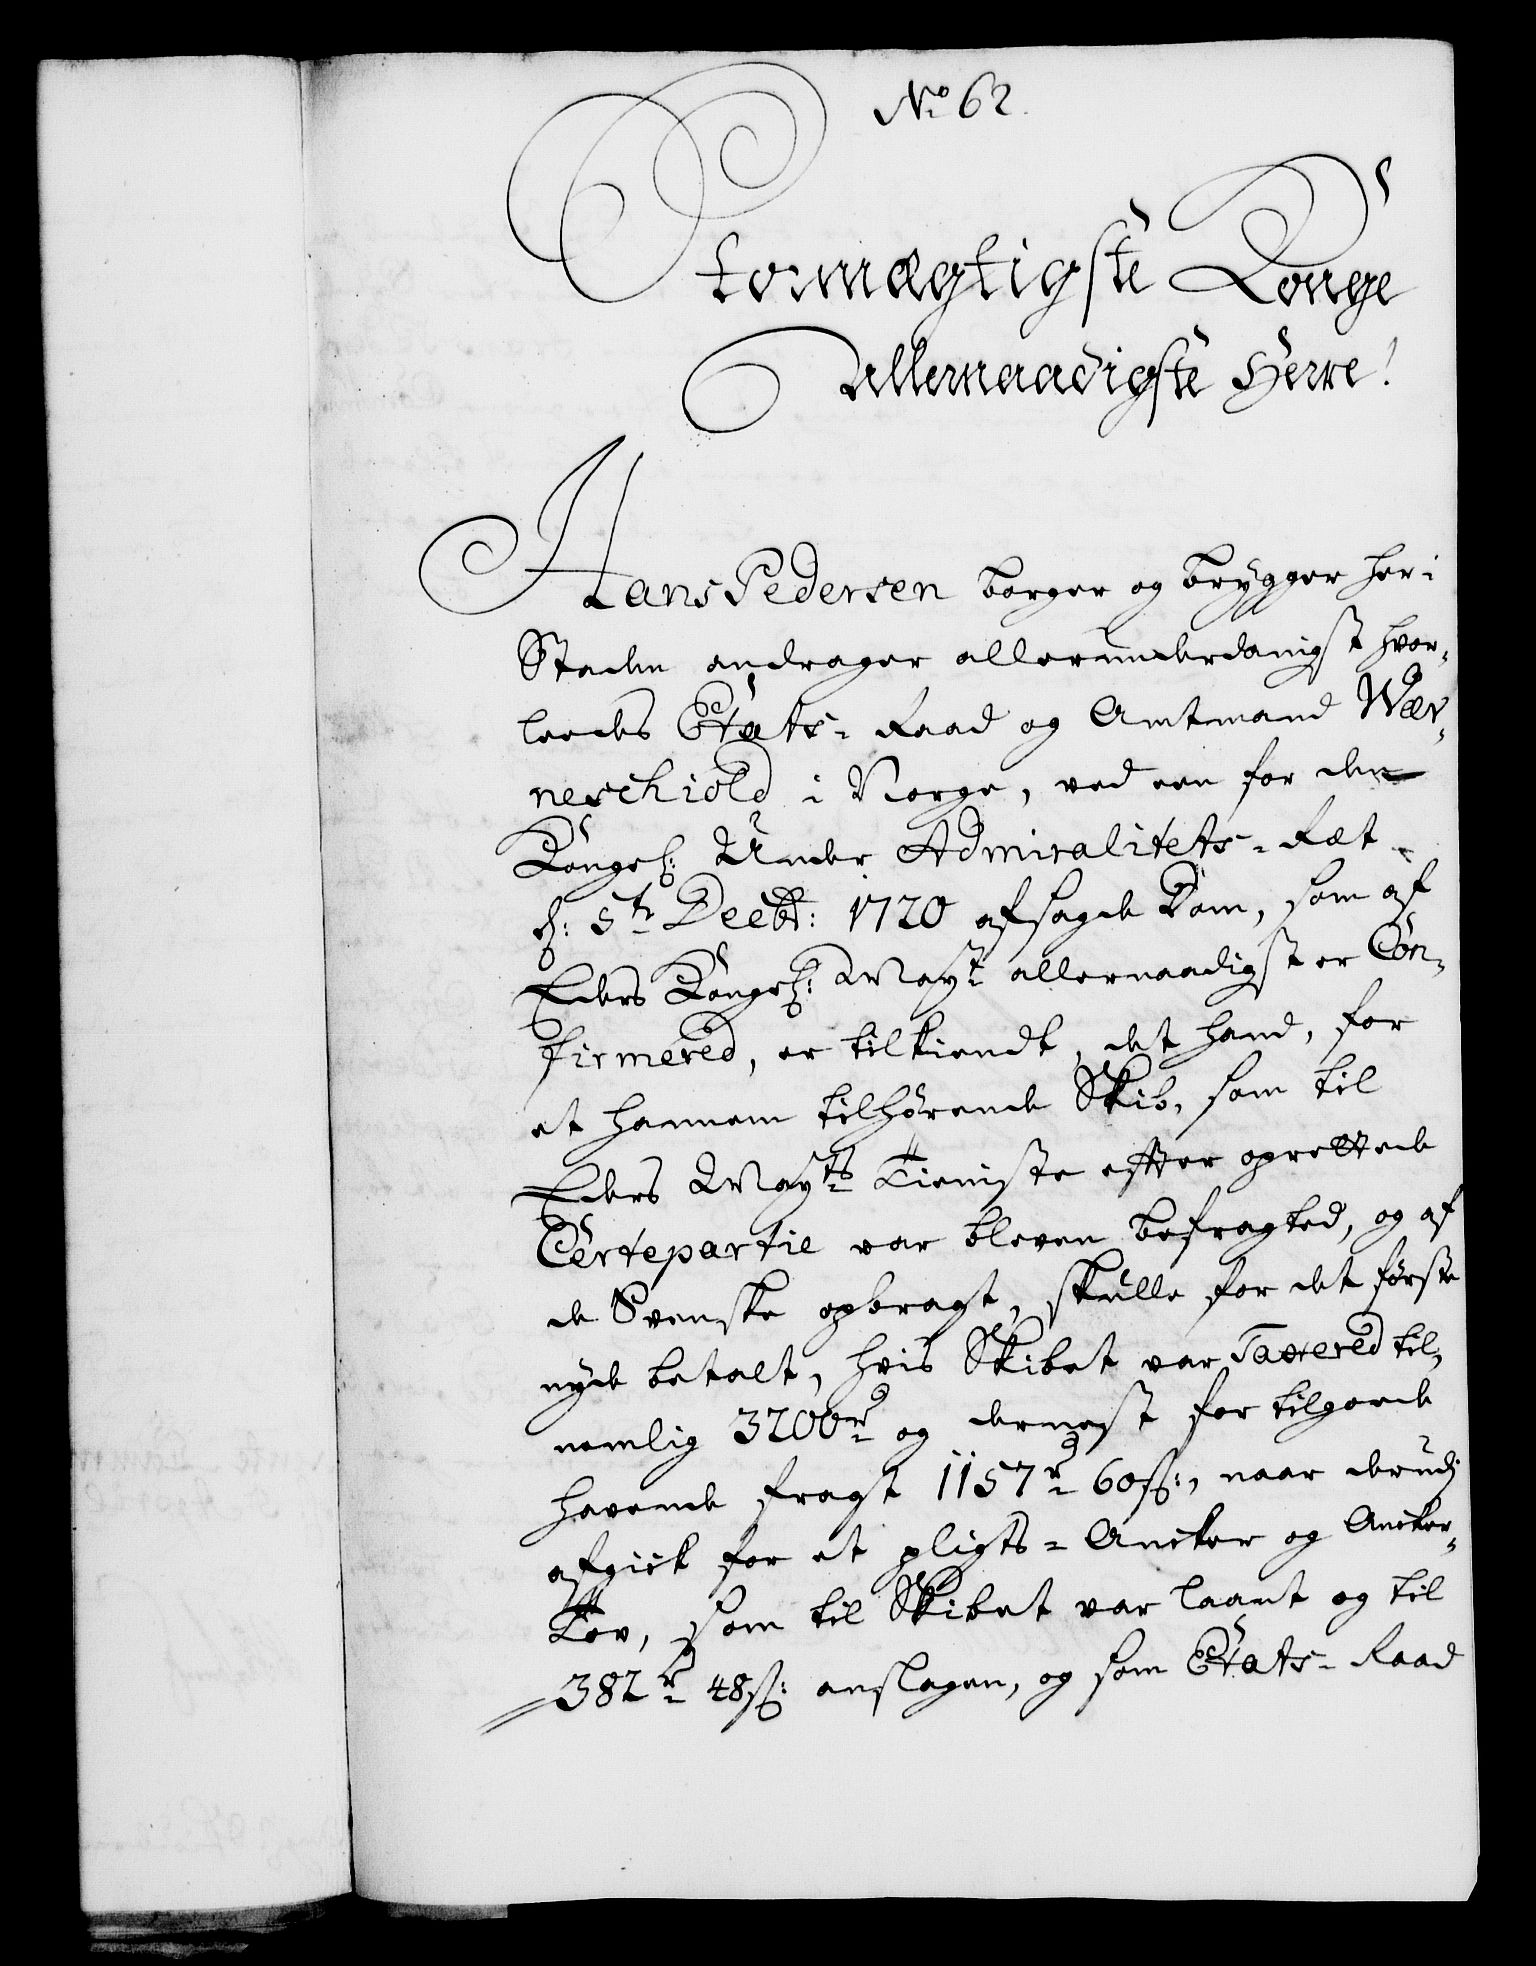 No 62.
Stormægtigste Konge
Allernaadigste Herre!
Hans Pedersen borger og brygger her i
Staden andrager allerunderdanigst hvor-
leedes Etats-Raad og Amtmand Wær-
neschiold i Norge, ved een for den
Kongel: Under Admiralitets-Ræt
d: 5te Decbr: 1720 afsagde Dom, som af
Eders Kongel: Mayt allernaadigst er Con-
firmered, er tilkiendt, det hand, for
et hannem tilhørende Skib, som til
Eders Mayts Tieniste effter oprettede
Certepartie var bleven befragted, og af
de Svenske opbragt, skulle for det første
nyde betalt, hvis Skibet var Taxered til,
nemlig 3200 Rd og dernæst for tilgode
havende fragt 1157 Rd 60 ß:, naar derudj
afgick for et pligts-Ancker og Ancker-
Tov, som til Skibet var laant og til
382 Rd 48 ß: anslagen, og som Etats-Raad